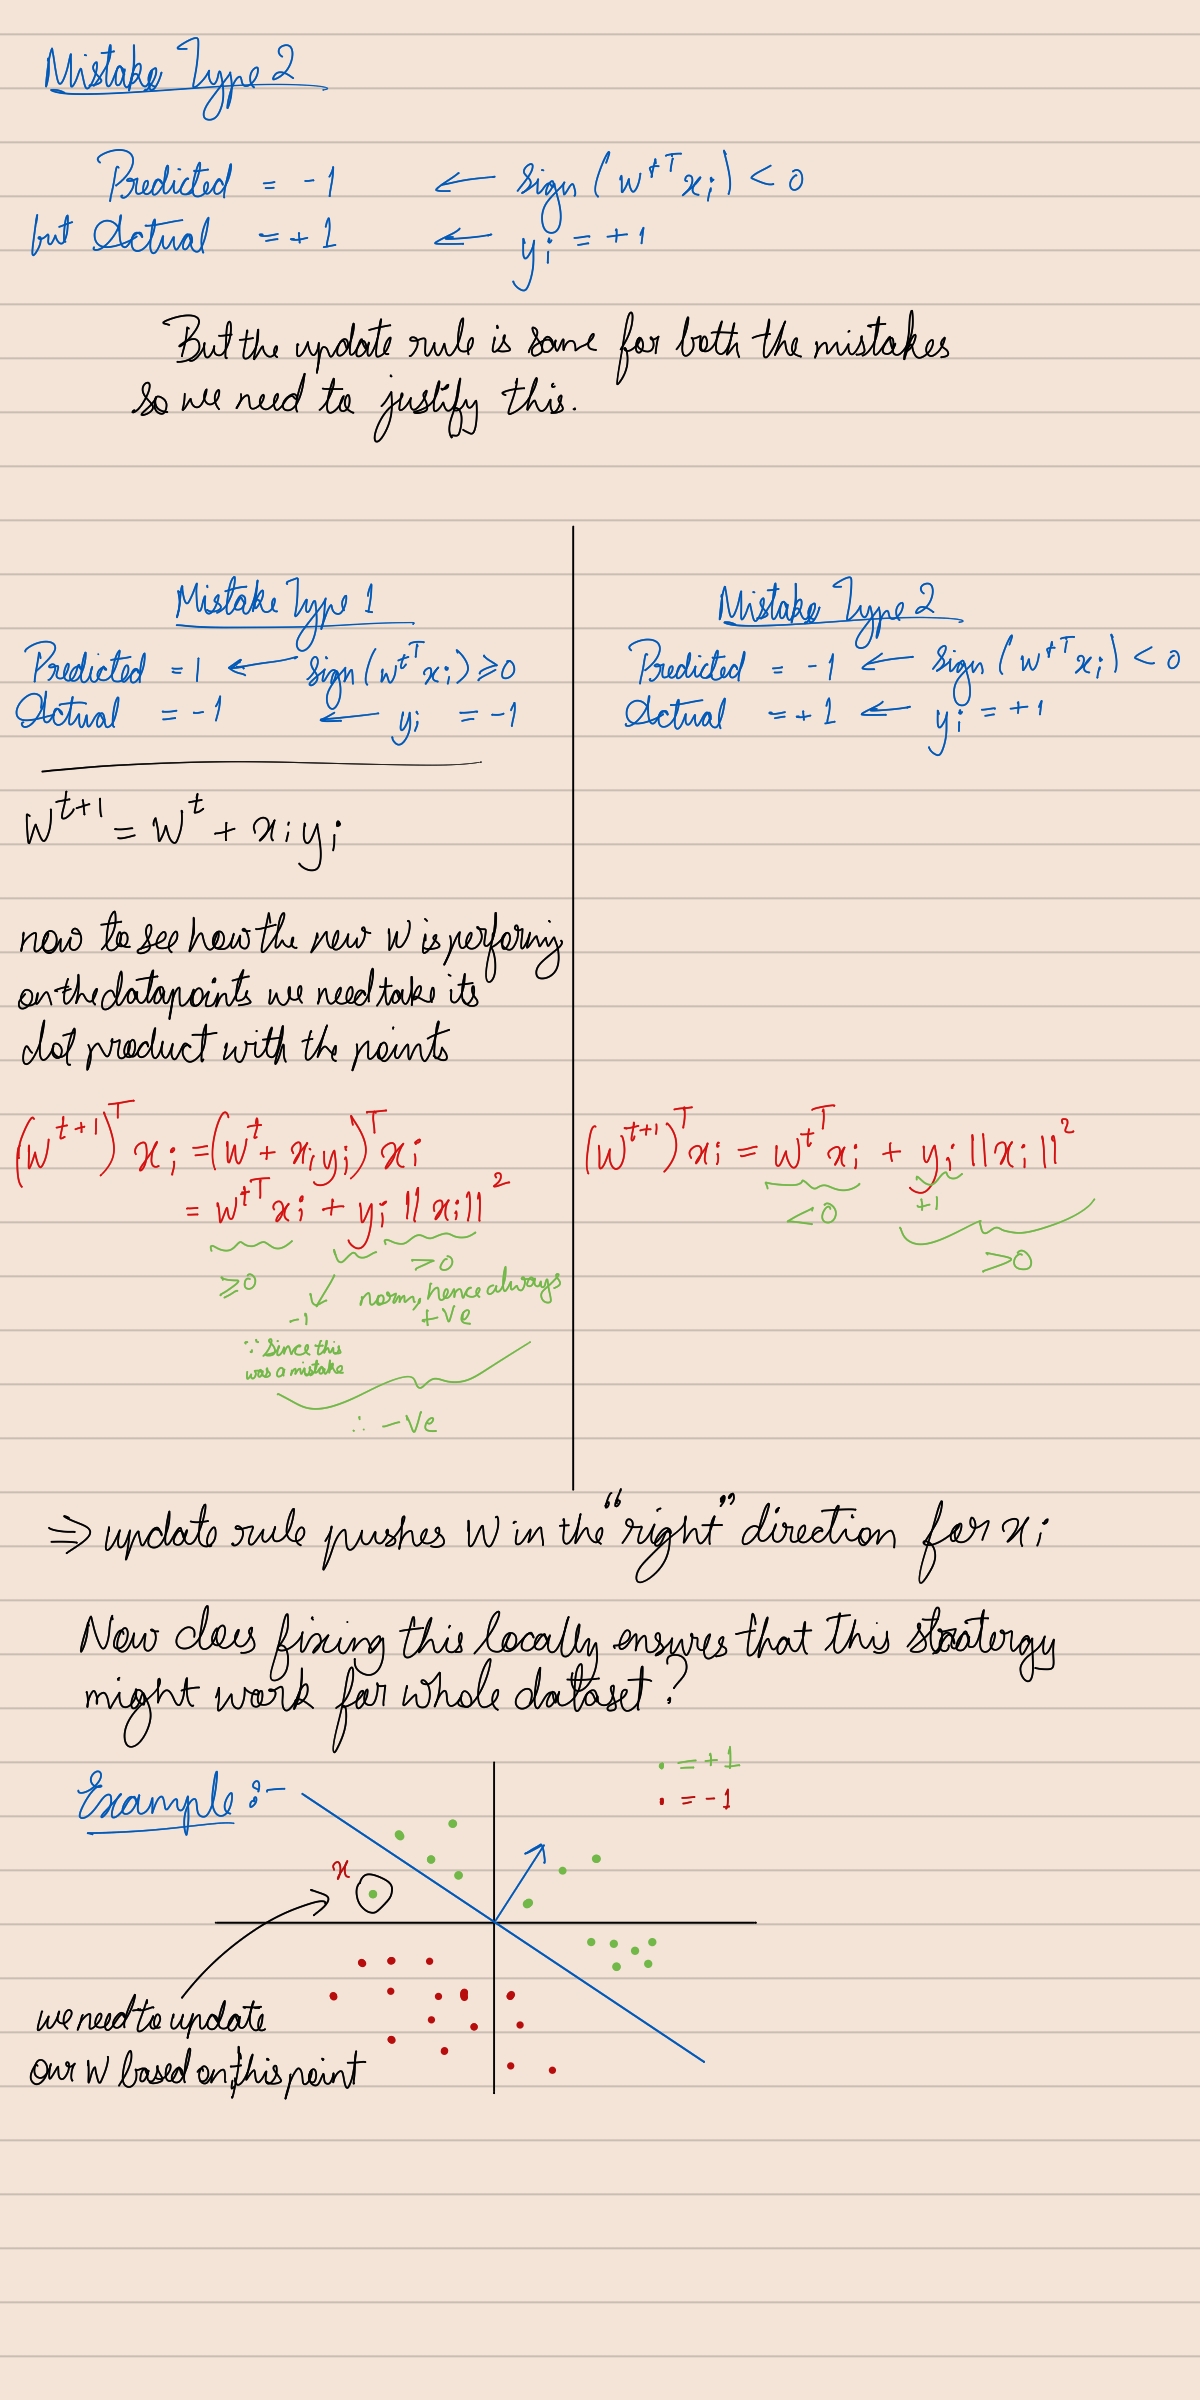 Mistake Type 2
Predicted = -1 ← sign (w^{tT} x_i) < 0
but Actual = +1 ← y_i = +1
But the update rule is same for both the mistakes
so we need to justify this.
Mistake Type 1
Predicted = 1 ← sign (w^{tT} x_i) ≥ 0
Actual = -1 ← y_i = -1
w^{t+1} = w^t + x_i y_i
now to see how the new w is perforing
on the datapoints we need take its
dot product with the points
(w^{t+1})^T x_i = (w^t + x_i y_i)^T x_i
= w^{tT} x_i + y_i ||x_i||^2
≥0
>0
-1
norm, hence always
+ve
∵ Since this
was a mistake
∴ -ve
Mistake Type 2
Predicted = -1 ← sign (w^{tT} x_i) < 0
Actual = +1 ← y_i = +1
(w^{t+1})^T x_i = w^{tT} x_i + y_i ||x_i||^2
<0
+1
>0
⇒ update rule pushes w in the "right" direction for x_i
Now does fixing this locally ensures that this staatergy
might work for whole dataset?
• = +1
Example :-
• = -1
x
we need to update
our w based on this point